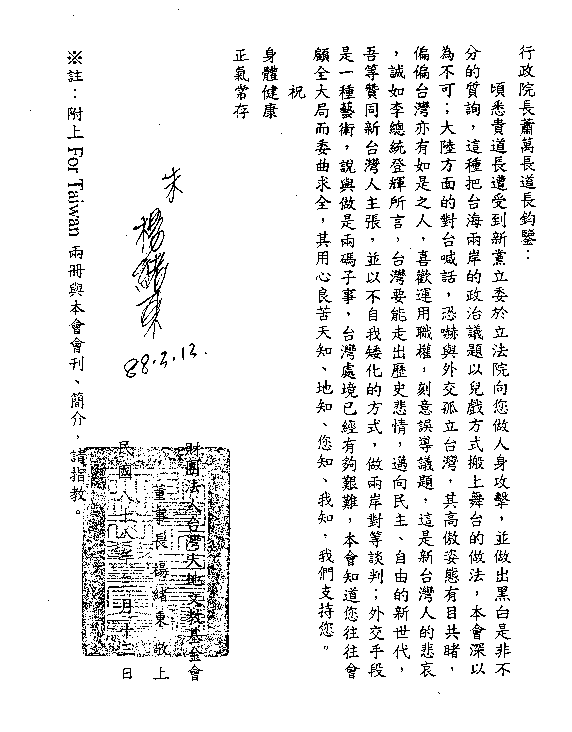 行政院長蕭萬長道長鈞鑒：
頃悉貴道長遭受到新黨立委於立法院向您做人身攻擊，並做出黑白是非不
分的質詢，這種把台海兩岸的政治議題以兒戲方式搬上舞台的做法，本會深以
為不可；大陸方面的對台喊話，恐嚇與外交孤立台灣，其高傲姿態有目共睹，
偏偏台灣亦有如是之人，喜歡運用職權，刻意誤導議題，這是新台灣人的悲哀
，誠如李總統登輝所言，台灣要能走出歷史悲情，邁向民主、自由的新世代，
吾等贊同新台灣人主張，並以不自我矮化的方式，做兩岸對等談判；外交手段
是一種藝術，說與做是兩碼子事，台灣處境已經有夠艱難，本會知道您往往會
顧全大局而委曲求全，其用心良苦天知、地知、您知、我知，我們支持您。
祝
身體健康
正氣常存
楊緒東
88.3.13.
財團法人台灣大地文教基金會
董事長楊緒東敬上
民國八十八年三月十三日
※註：附上 For Taiwan 兩冊與本會會刊、簡介，請指教。